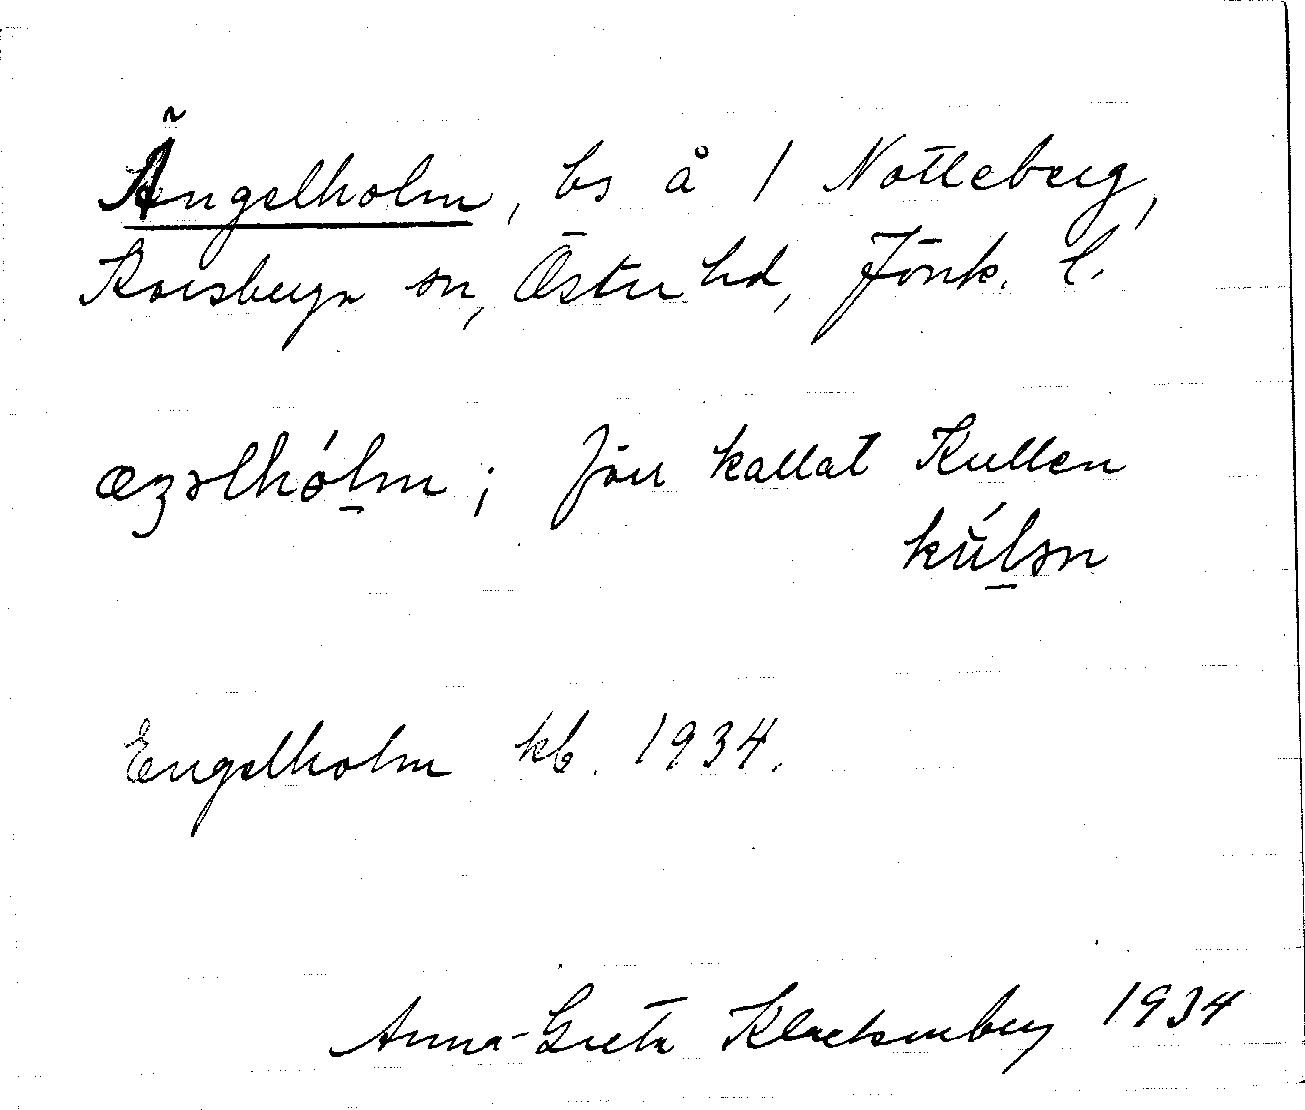 Ängelholm, bs å 1 Notteberg,
Korsberga sn, Östra hd, Jönk. l.
æŋəlhólm; förr kallat Kullen
kúlən
Engelholm kb. 1934.
Anna-Greta Klackenberg 1934